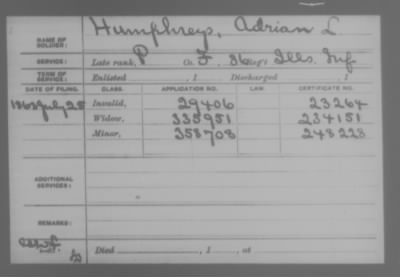 NAME OF SOLDIER: Humphreys, Adrian L.
SERVICE: Late rank, P Co. F, 86 Reg't Ills. Inf
TERM OF SERVICE: Enlisted , 1 Discharged , 1
DATE OF FILING. CLASS. APPLICATION NO. LAW. CERTIFICATE NO.
1863 July 25 Invalid, 29406 23264
Widow, 335951 234151
Minor, 358708 248223
ADDITIONAL SERVICES:
REMARKS:
Died , 1 , at